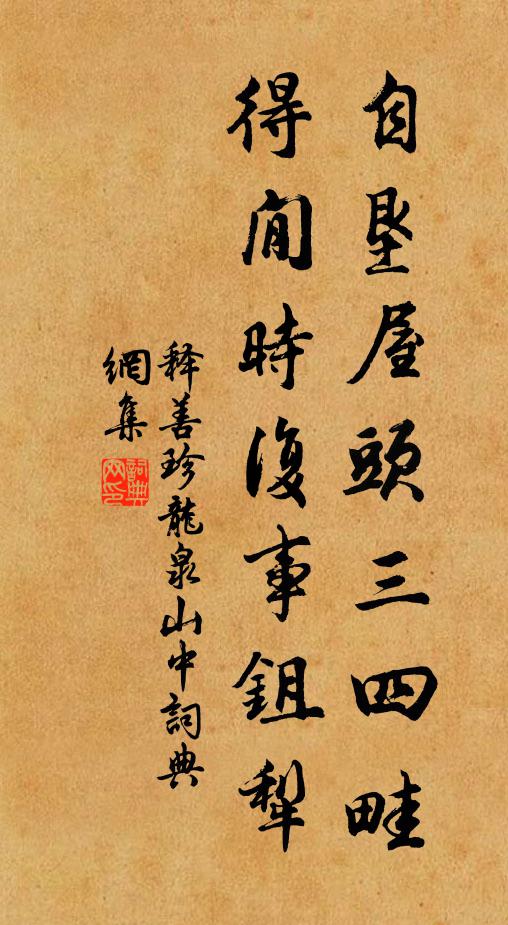 自垦屋頭三四畦
得閒時復事鉏犁
释善珍龍泉山中詞典
網集
詞典網印